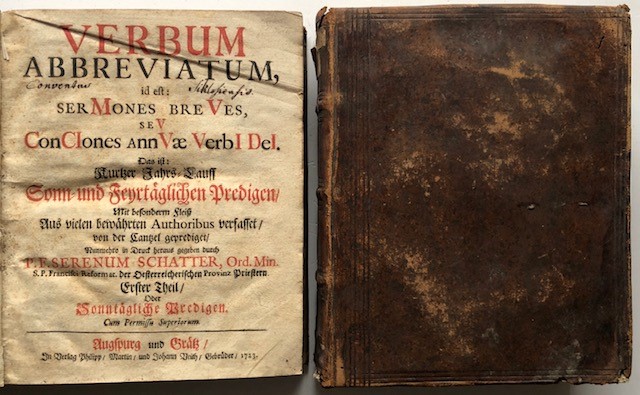 VERBUM
ABBREVIATUM,
Conventus Siklosiensis.
id est:
SERMONES BREVES,
SEV
ConCIones AnnVæ VerbI DeI.
Das ist:
Kurtzer Jahrs-Lauff
Sonn- und Feyrtäglichen Predigen/
Mit besonderm Fleiß
Aus vielen bewährten Authoribus verfasset/
von der Cantzel geprediget/
Nunmehro in Druck heraus gegeben durch
P. F. SERENUM SCHATTER, Ord. Min.
S. P. Francisci Reformat. der Oesterreicherischen Provinz Priestern.
Erster Theil/
Oder
Sonntägliche Predigen.
Cum Permissu Superiorum.
Augspurg und Grätz/
In Verlag Philipp/ Martin/ und Johann Veith/ Gebrüder/ 1723.